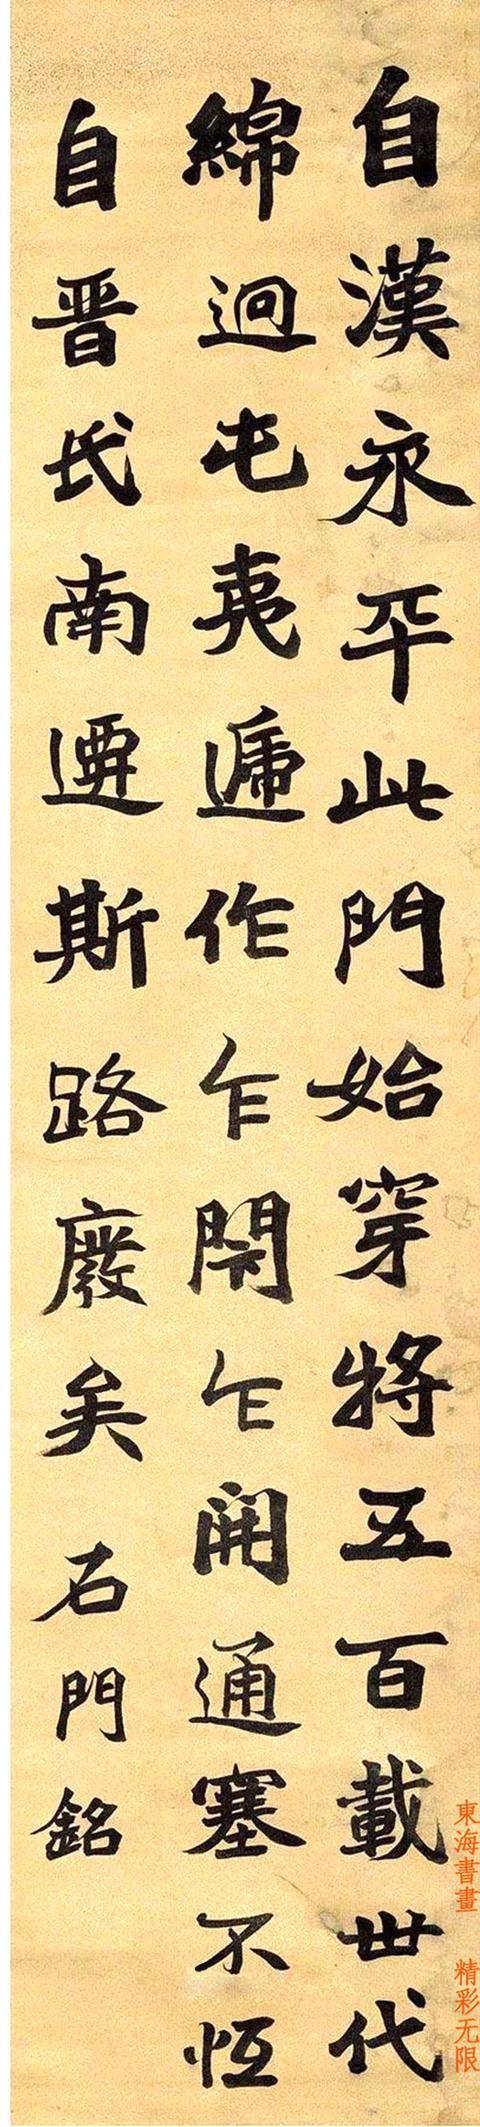 自漢永平此門始穿將五百載世代
綿迥屯夷遞作乍開乍閉通塞不恆
自晋氏南遷斯路廢矣 石門銘
東海書畫 精彩无限